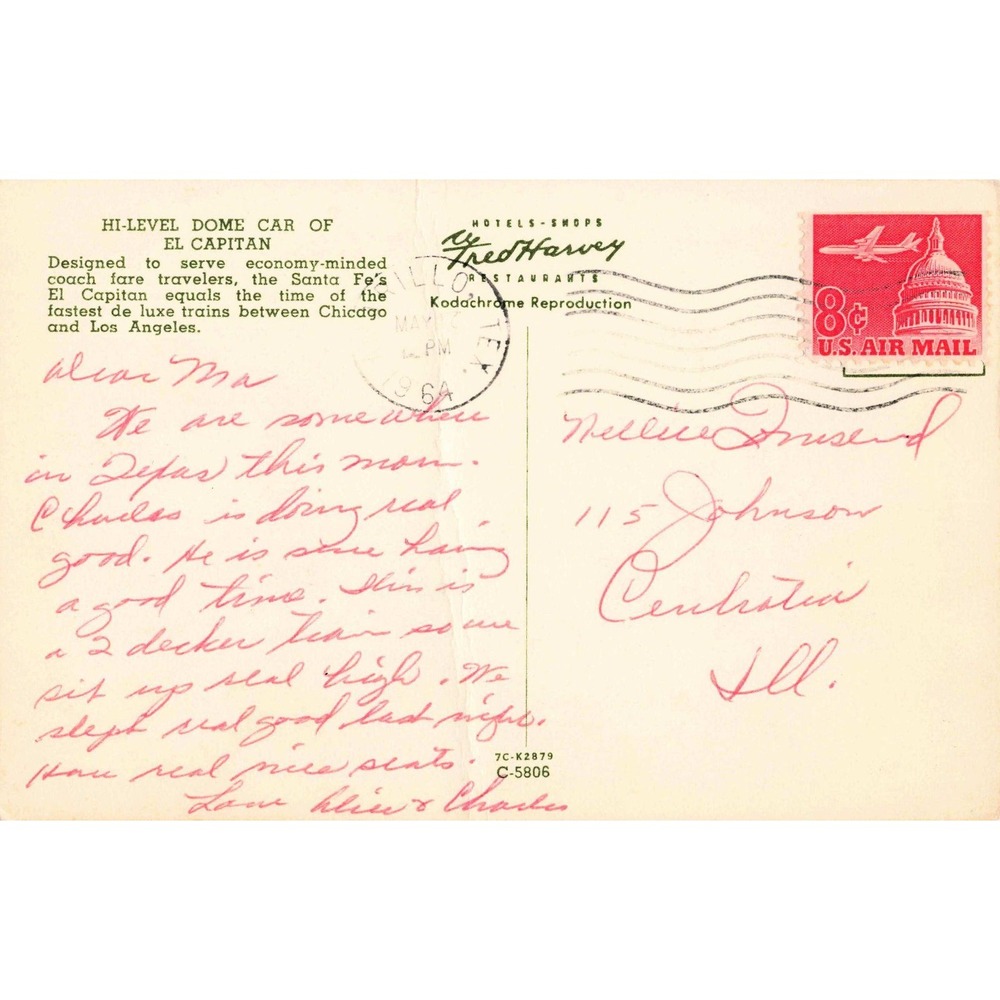 HI-LEVEL DOME CAR OF
EL CAPITAN
Designed to serve economy-minded
coach fare travelers, the Santa Fe's
El Capitan equals the time of the
fastest de luxe trains between Chicago
and Los Angeles.
HOTELS-SHOPS
Fred Harvey
RESTAURANTS
Kodachrome Reproduction
ILLO, TEX.
MAY
PM
1964
8¢
U.S. AIR MAIL
Dear Ma
We are somewhere
in Texas this morn.
Charles is doing real
good. He is sure having
a good time. This is
a 2 decker train so we
sit up real high. We
slept real good last night.
Have real nice seats.
Love & Charles
Nellie Townsend
115 Johnson
Centralia
Ill.
7C-K2879
C-5806